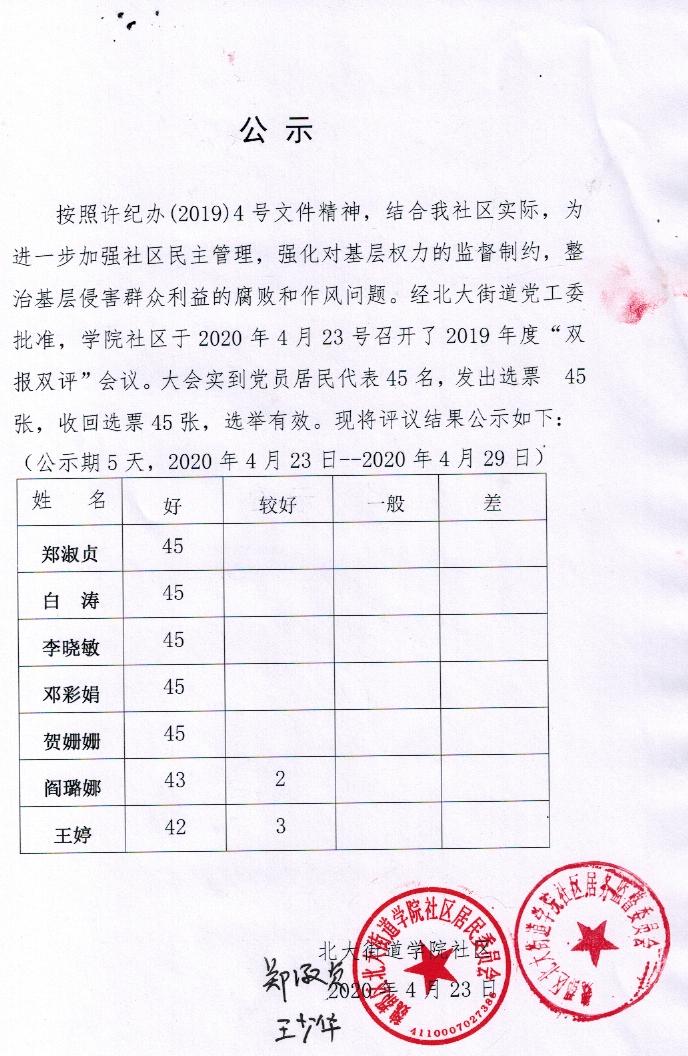 公 示
按照许纪办(2019)4 号文件精神，结合我社区实际，为
进一步加强社区民主管理，强化对基层权力的监督制约，整
治基层侵害群众利益的腐败和作风问题。经北大街道党工委
批准，学院社区于 2020 年 4 月 23 号召开了 2019 年度“双
报双评”会议。大会实到党员居民代表 45 名，发出选票 45
张，收回选票 45 张，选举有效。现将评议结果公示如下：
（公示期 5 天，2020 年 4 月 23 日--2020 年 4 月 29 日）
姓 名 好 较好 一般 差
郑淑贞 45
白 涛 45
李晓敏 45
邓彩娟 45
贺姗姗 45
阎璐娜 43 2
王婷 42 3
北大街道学院社区
2020 年 4 月 23 日
郑淑贞
王少华
魏都区北大街道学院社区居民委员会
4110007027386
魏都区北大街道学院社区居务监督委员会